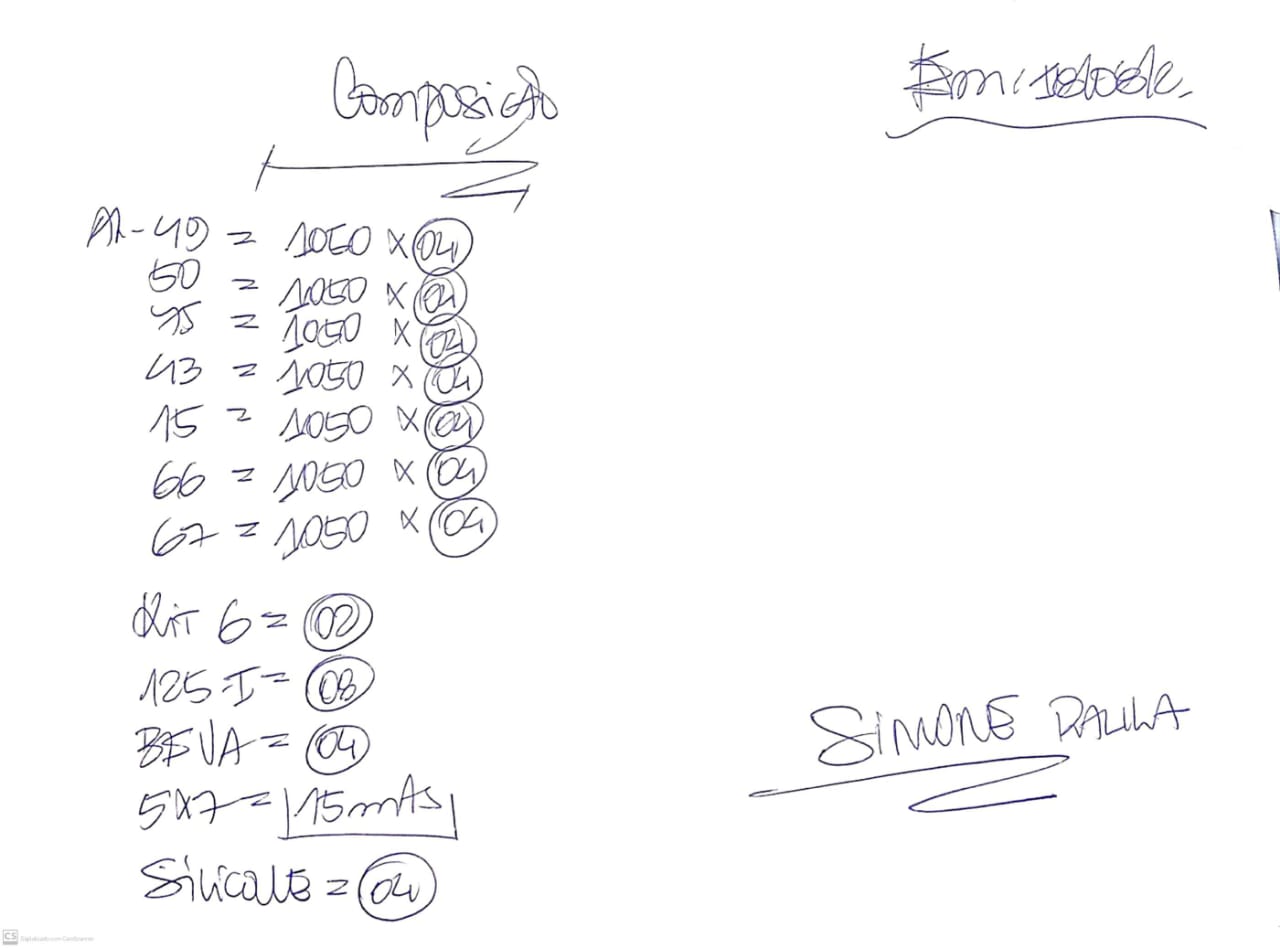 Composição
AL-49 = 1050 x 04
50 = 1050 x 04
75 = 1050 x 04
43 = 1050 x 04
15 = 1050 x 04
66 = 1050 x 04
67 = 1050 x 04
Kit 6 = 02
125-I = 08
BEVA = 04
5x7 = 15 mts
Silicone = 04
SIMONE PAULA
CS Digitalizado com CamScanner